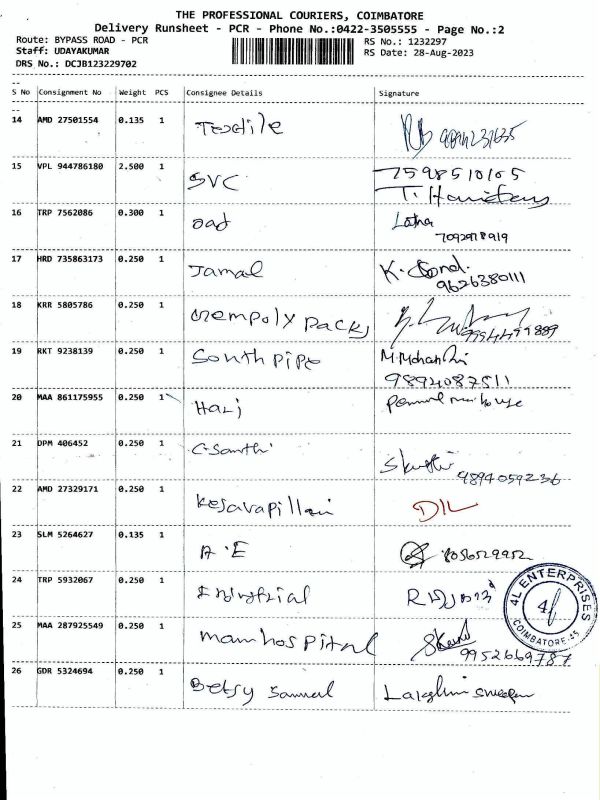 THE PROFESSIONAL COURIERS, COIMBATORE
Delivery Runsheet - PCR - Phone No.:0422-3505555 - Page No.:2
Route: BYPASS ROAD - PCR
RS No.: 1232297
Staff: UDAYAKUMAR
RS Date: 28-Aug-2023
DRS No.: DCJB123229702
S No Consignment No Weight PCS Consignee Details Signature
14 AMD 27501554 0.135 1 Textile
15 VPL 944786180 2.500 1 SVC 7598510105
16 TRP 7562086 0.300 1 Latha
7092978919
17 HRD 735863173 0.250 1 Jamal
9626380111
18 KRR 5805786 0.250 1 packs
19 RKT 9238139 0.250 1 South pipe M.Mohan
9894087511
20 MAA 861175955 0.250 1 Hari
21 DPM 406452 0.250 1 C-Santhi
9894059236
22 AMD 27329171 0.250 1 Kesavapillai DIL
23 SLM 5264627 0.135 1 A.E 8056529952
24 TRP 5932067 0.250 1
4L ENTERPRISES
4L
COIMBATORE-45
25 MAA 287925549 0.250 1 mamhospital
9952669787
26 GDR 5324694 0.250 1 Betsy Samuel